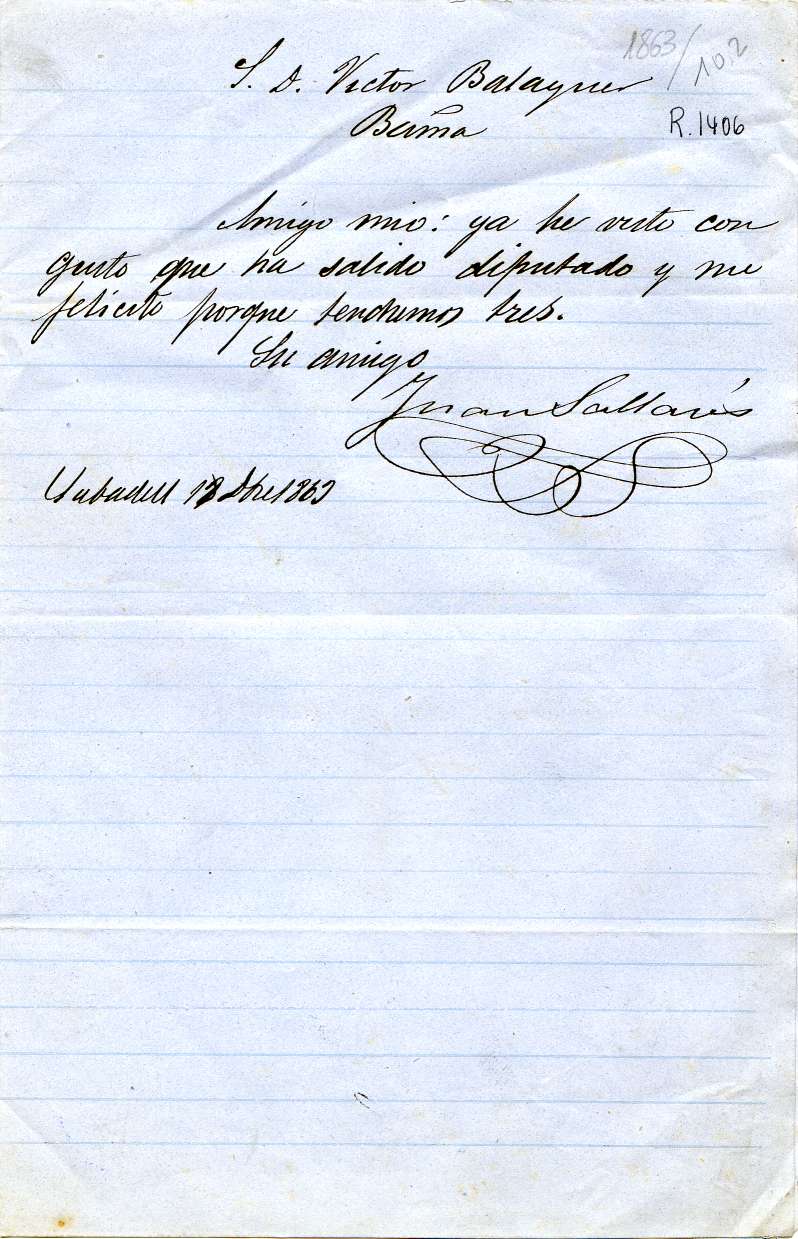 1863/102
S. D. Victor Balaguer
R.1406
Barña
Amigo mio: ya he visto con
gusto que ha salido diputado y me
felicito porque tendremos tres.
Su amigo
Juan Sallarés
Sabadell Dbre 1863